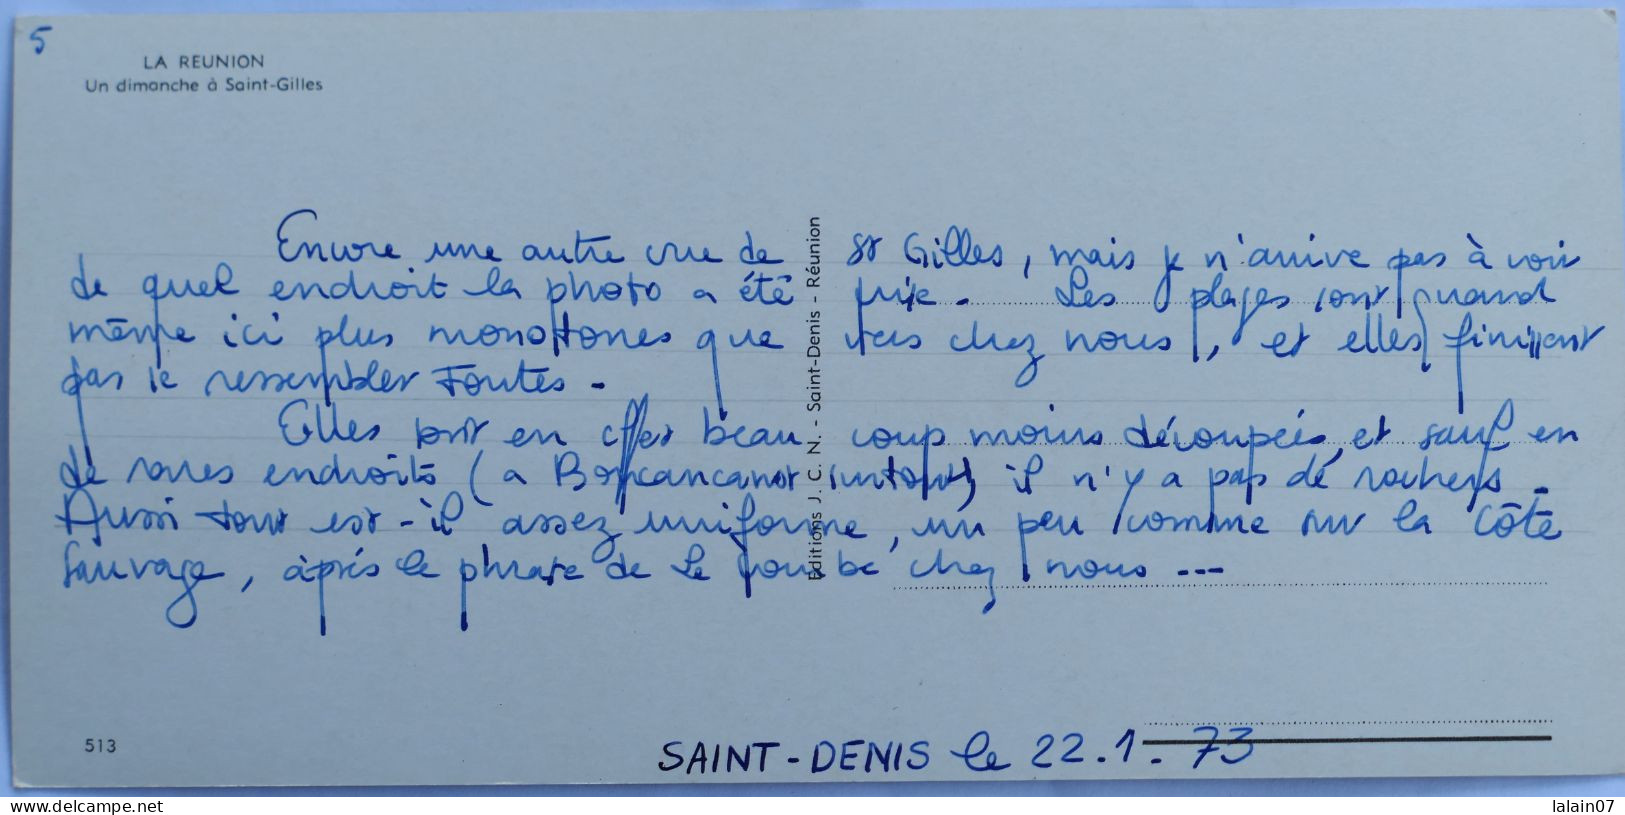 5
LA REUNION
Un dimanche à Saint-Gilles
Encore une autre vue de St Gilles, mais je n'arrive pas à voir
de quel endroit la photo a été prise. Les plages sont quand
même ici plus monotones que vers chez nous, et elles finissent
par se ressembler toutes.
Elles sont en effet beaucoup moins découpées, et sauf en
de rares endroits (a Boucancanot surtout) il n'y a pas de rochers.
Aussi tout est-il assez uniforme, un peu comme sur la Côte
Sauvage, après le phrase de Le chez nous ---
Editions J. C. N. - Saint-Denis - Réunion
513
SAINT-DENIS le 22.1.73
lalain07
www.delcampe.net